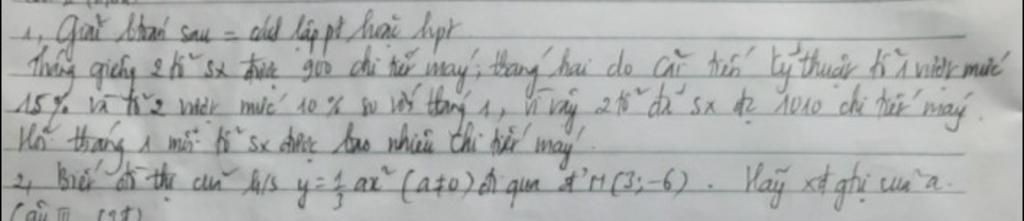 1, Giải btoán sau = cách lập pt hoặc hpt
Tháng giêng 2 tổ sx được 900 chi tiết máy; tháng hai do cải tiến kỹ thuật tổ 1 vượt mức
15% và tổ 2 vượt mức 10% so với tháng 1, vì vậy 2 tổ đã sx đc 1010 chi tiết máy.
Hỏi tháng 1 mỗi tổ sx được bao nhiêu chi tiết máy.
2, Biết đồ thị của h/s y = 1/3 ax² (a≠0) đi qua đ' M (3; -6). Hãy xđ gtrị của a.
Câu III